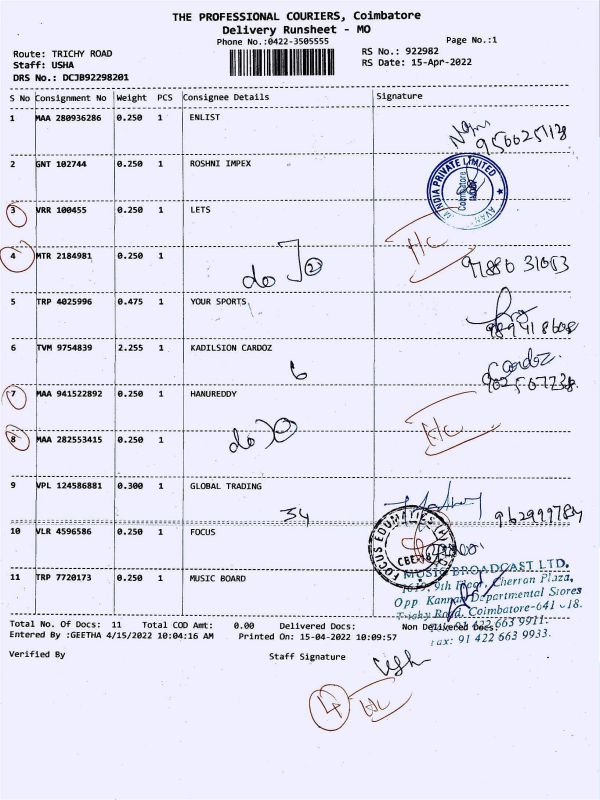 THE PROFESSIONAL COURIERS, Coimbatore
Delivery Runsheet - MO
Phone No.:0422-3505555
Page No.:1
Route: TRICHY ROAD
RS No.: 922982
Staff: USHA
RS Date: 15-Apr-2022
DRS No.: DCJB92298201
S No Consignment No Weight PCS Consignee Details Signature
1 MAA 280936286 0.250 1 ENLIST
2 GNT 102744 0.250 1 ROSHNI IMPEX
INDIA PRIVATE LIMITED
Coimbatore
3 VRR 100455 0.250 1 LETS
Hc
4 MTR 2184981 0.250 1
do 2
5 TRP 4025996 0.475 1 YOUR SPORTS
6 TVM 9754839 2.255 1 KADILSION CARDOZ
Cardoz.
6
7 MAA 941522892 0.250 1 HANUREDDY
Hc
8 MAA 282553415 0.250 1
do
9 VPL 124586881 0.300 1 GLOBAL TRADING
34
10 VLR 4596586 0.250 1 FOCUS
FOCUS EDUMATICS
11 TRP 7720173 0.250 1 MUSIC BOARD
MUSIC BROADCAST LTD.
1619, 9th Floor, Cherran Plaza,
Opp. Kannan Departmental Stores
Trichy Road, Coimbatore-641 018.
91 422 663 9911.
Fax: 91 422 663 9933.
Total No. Of Docs: 11 Total COD Amt: 0.00 Delivered Docs: Non Delivered Docs:
Entered By :GEETHA 4/15/2022 10:04:16 AM Printed On: 15-04-2022 10:09:57
Verified By Staff Signature
Ush
4 Hc